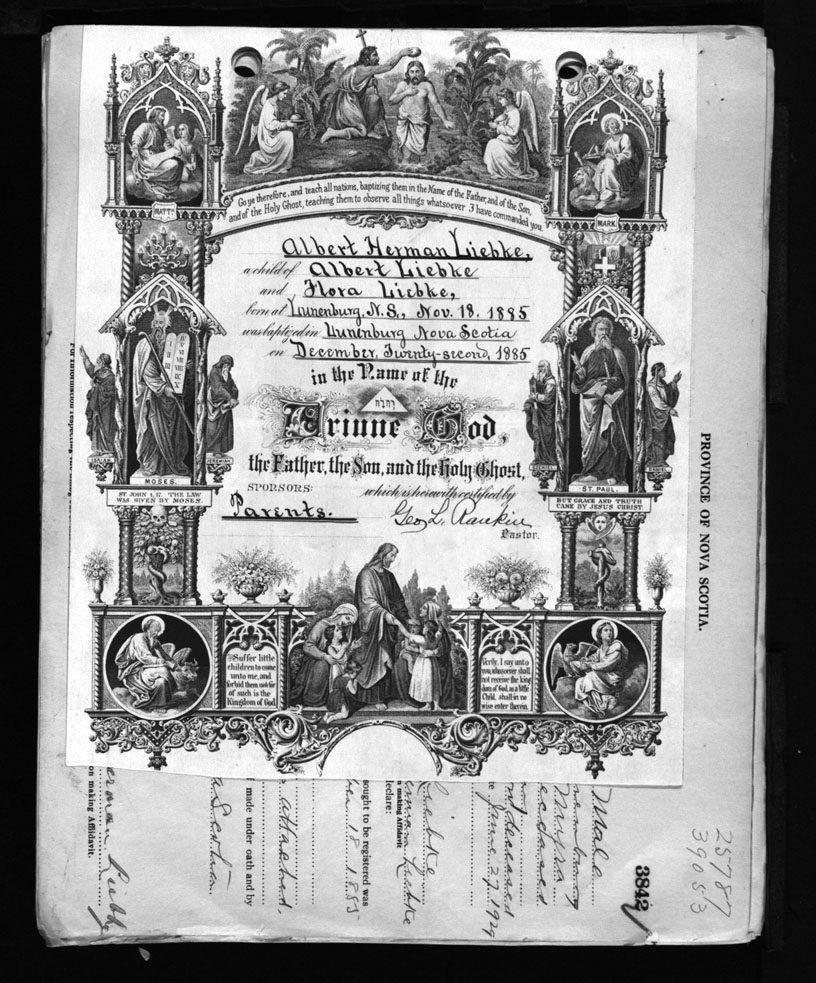 Go ye therefore, and teach all nations, baptizing them in the Name of the Father, and of the Son,
and of the Holy Ghost, teaching them to observe all things whatsoever I have commanded you.
MATT.
MARK.
Albert Herman Liebke,
a child of Albert Liebke
and Flora Liebke,
born at Lunenburg, N.S., Nov. 18. 1885
was baptized in Lunenburg Nova Scotia
on December, Twenty-second, 1885
in the Name of the
יהוה
Triune God,
the Father, the Son, and the Holy Ghost,
SPONSORS: which is herewith certified by
Parents. Geo L. Rankin
Pastor.
ISAIAH
JEREMIAH
MOSES.
EZEKIEL
DANIEL
ST. PAUL.
ST. JOHN 1, 17. THE LAW
WAS GIVEN BY MOSES.
BUT GRACE AND TRUTH
CAME BY JESUS CHRIST.
Suffer little
children to come
unto me, and
forbid them not for
of such is the
Kingdom of God
Verily, I say unto
you, whosoever shall
not receive the king
dom of God, as a little
Child, shall in no
wise enter therein.
PROVINCE OF NOVA SCOTIA.
25787
39053
3842
Male
deceased
June 27, 1929
Liebke
on making Affidavit
declare:
sought to be registered was
18 1885
attached,
made under oath and by
erman Liebke
on making Affidavit.